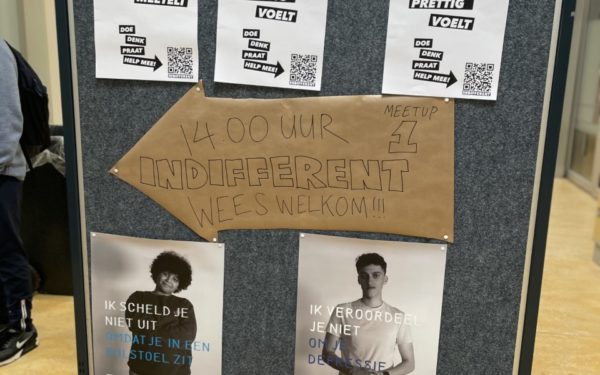 MEETELT
DOE
DENK
PRAAT
HELP MEE!
VOELT
DOE
DENK
PRAAT
HELP MEE!
PRETTIG
VOELT
DOE
DENK
PRAAT
HELP MEE!
MEETUP
1
14.00 UUR
INDIFFERENT
WEES WELKOM!!!
IK SCHELD JE
NIET UIT
OMDAT JE IN EEN
ROLSTOEL ZIT
IK VEROORDEEL
JE NIET
OM JE
DEPRESSIE